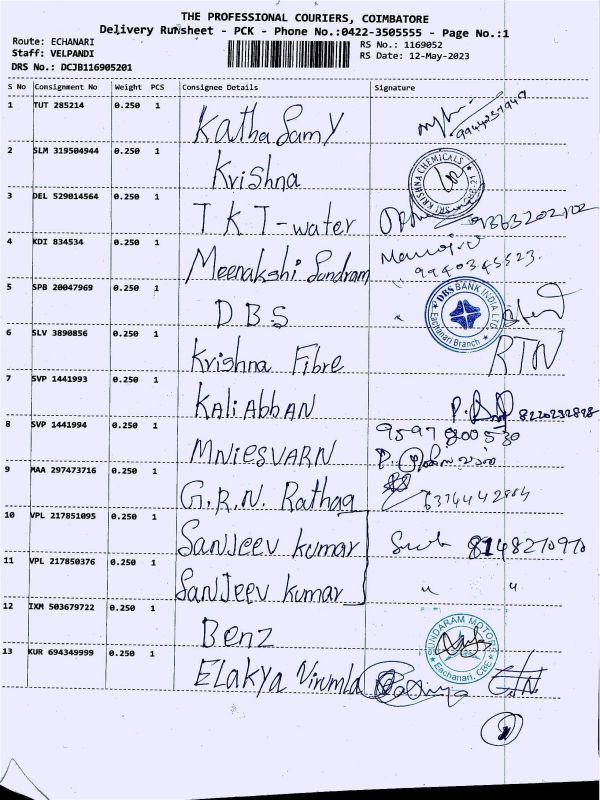 THE PROFESSIONAL COURIERS, COIMBATORE
Delivery Runsheet - PCK - Phone No.:0422-3505555 - Page No.:1
Route: ECHANARI
RS No.: 1169052
Staff: VELPANDI
RS Date: 12-May-2023
DRS No.: DCJB116905201
S No Consignment No Weight PCS Consignee Details Signature
1 TUT 285214 0.250 1 Katha Samy
2 SLM 319504944 0.250 1 Krishna SRI KRISHNA CHEMICALS
3 DEL 529014564 0.250 1 T K T-water
4 KDI 834534 0.250 1 Meenakshi Sundram
9940345523.
5 SPB 20047969 0.250 1 D B S DBS BANK INDIA LTD Eachanari Branch
6 SLV 3890856 0.250 1 Krishna Fibre RTN
7 SVP 1441993 0.250 1 KaliAbbAN 8220232898
8 SVP 1441994 0.250 1 MNIESVARN 9597800530
9 MAA 297473716 0.250 1 G.R.N. Rathaa
10 VPL 217851095 0.250 1 SanJeev kumar 8148270970
11 VPL 217850376 0.250 1 SanJeev kumar " "
12 IXM 503679722 0.250 1 Benz SUNDARAM MOTORS Eachanari, CBE
13 KUR 694349999 0.250 1 Elakya Virumla